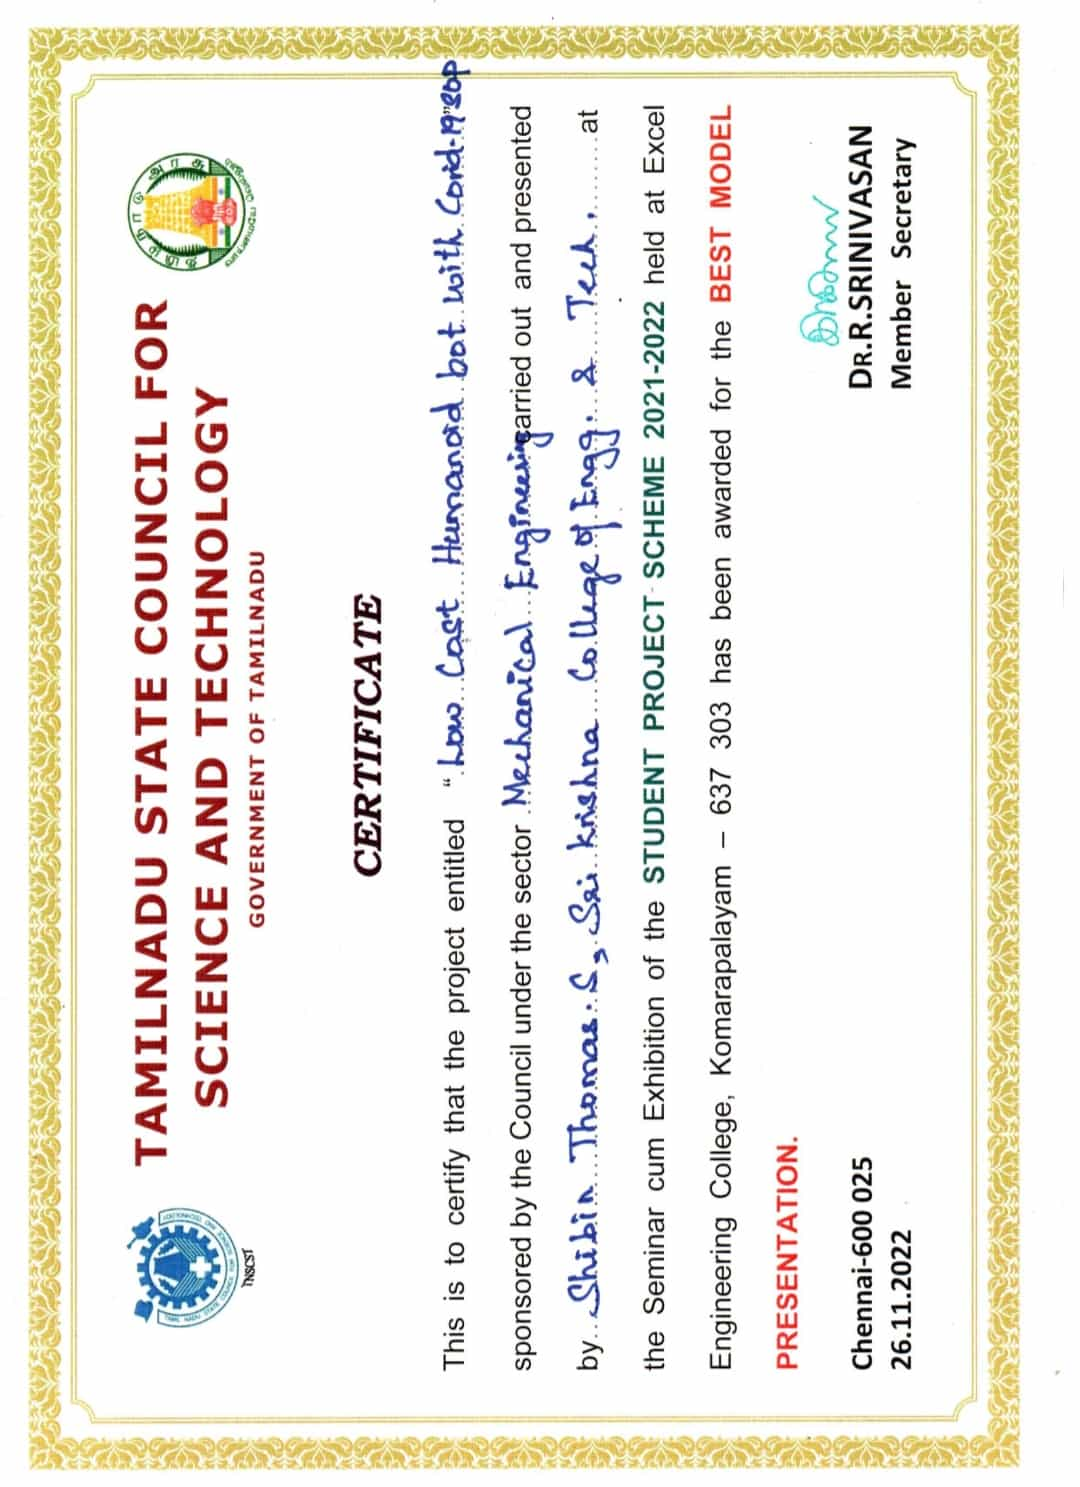 TAMILNADU STATE COUNCIL FOR
SCIENCE AND TECHNOLOGY
GOVERNMENT OF TAMILNADU
TNSCST
CERTIFICATE
This is to certify that the project entitled “Low Cost Humanoid bot with Covid-19 SOP
sponsored by the Council under the sector Mechanical Engineering carried out and presented
by Shibin Thomas. S, Sri Krishna College of Engg. & Tech. at
the Seminar cum Exhibition of the STUDENT PROJECT SCHEME 2021-2022 held at Excel
Engineering College, Komarapalayam – 637 303 has been awarded for the BEST MODEL
PRESENTATION.
Chennai-600 025
26.11.2022
DR.R.SRINIVASAN
Member Secretary